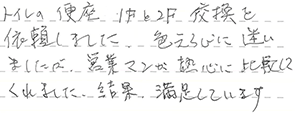 トイレの便座 1Fと2F 交換を
依頼しました。色えらびに迷い
ましたが、営業マンが熱心に比較して
くれました。結果、満足しています